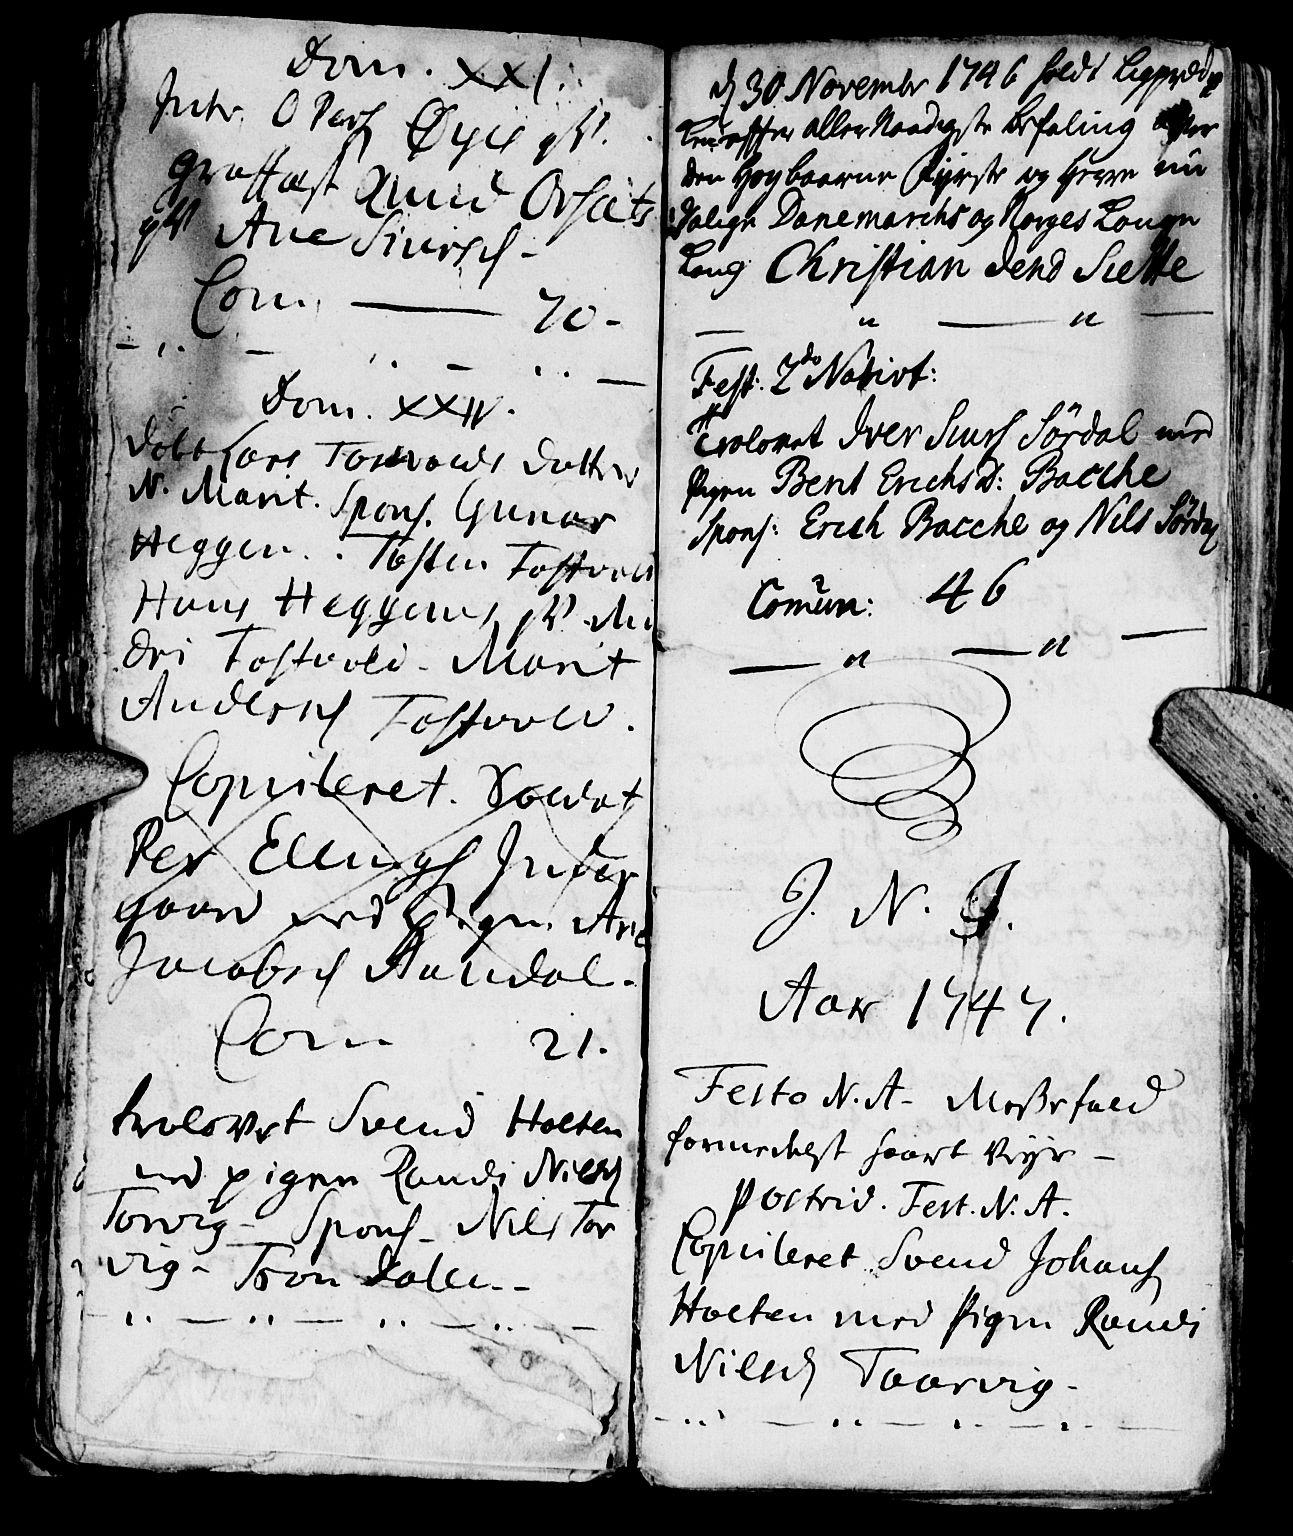 Dom. XXI.
Intr. O Pers Øyes qv.
graffæst Knud Orsets
qv Ane Siursd -
Com. — 70 -
Dom. XXIV.
døbt Lars Tostvolds datter
N. Marit. Spons. Gunar
Heggen. Tosten Tostvold
Hans Heggems qv. An
dri Tostvold - Marit
Andersd Tostvold.
Copuleret. Soldat
Per Ellings Inder
gaard med Pigen Ane
Jacobsd Aandal -
Com 21.
trolovet Svend Holten
med pigen Randi Nilsd
Torvig - Spons - Nils Tor
vig - Tron Dalen -
d 30 November 1746 holdt Ligpræd
efter aller Naadigste befaling over
den Høybaarne Fyrste og Herre nu
Salige Danemarchs og Norges Konge
Kong Christian dend Siette
Fest. 2do Nativit:
Trolovet Iver Siurs Sördal med
Pigen Berit Erichs D: Bacche
Spons: Erich Bacche og Nils Sördal
Comun: 46
J. N. J.
Aar 1747.
Festo N. A - Messefald
formedelst haart Veyr -
Postrid. Fest. N. A.
Copuleret Svend Johans
Holten med Pigen Randi
Nilsd Taarvig -